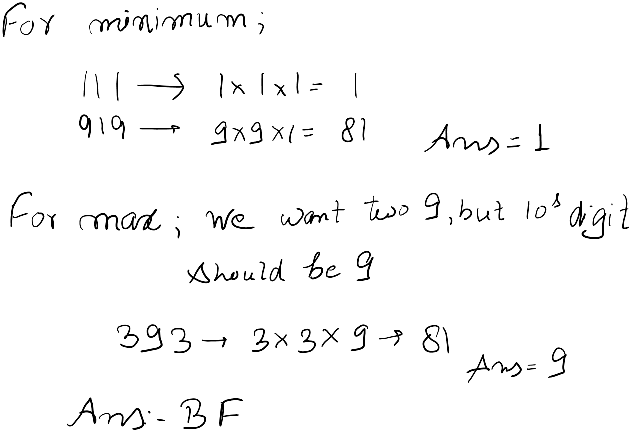 For minimum;
111 → 1×1×1= 1
919 → 9×9×1= 81 Ans = 1
For max; we want two 9, but 10s digit
should be 9
393 → 3×3×9 → 81
Ans = 9
Ans:- BF